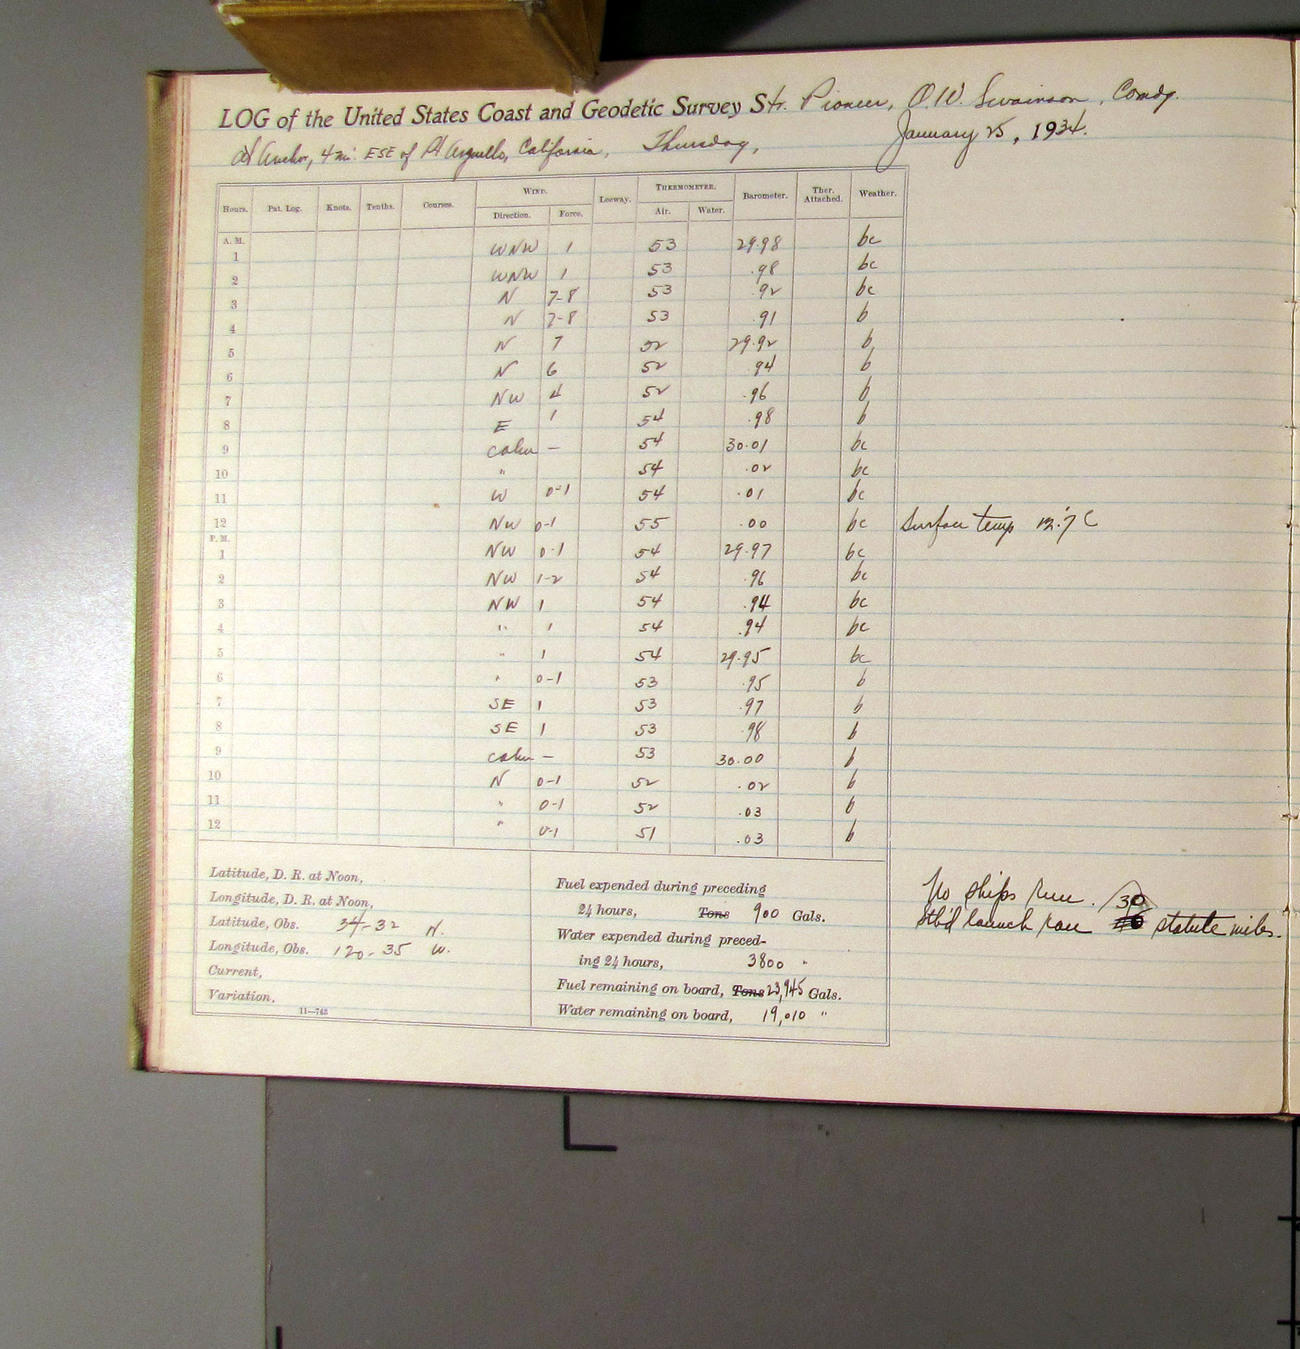 LOG of the United States Coast and Geodetic Survey Str. Pioneer, O.W. Swainson, Comdg.
At Anchor, 4 mi. ESE of Pt Arguello, California, Thursday, January 25, 1934.
Hours. Pat. Log. Knots. Tenths. Courses. WIND. Direction. Force. Leeway. THERMOMETER. Air. Water. Barometer. Ther. Attached. Weather.
A. M.
1 WNW 1 53 29.98 bc
2 WNW 1 53 .98 bc
3 N 7-8 53 .92 bc
4 N 7-8 53 .91 b
5 N 7 52 29.92 b
6 N 6 52 .94 b
7 NW 4 52 .96 b
8 E 1 54 .98 b
9 calm — 54 30.01 bc
10 " 54 .02 bc
11 W 0-1 54 .01 bc
12 NW 0-1 55 .00 bc Surface temp 12.7 C
P. M.
1 NW 0-1 54 29.97 bc
2 NW 1-2 54 .96 bc
3 NW 1 54 .94 bc
4 " 1 54 .94 bc
5 " 1 54 29.95 bc
6 " 0-1 53 .95 b
7 SE 1 53 .97 b
8 SE 1 53 .98 b
9 calm — 53 30.00 b
10 N 0-1 52 .02 b
11 " 0-1 52 .03 b
12 " 0-1 51 .03 b
Latitude, D. R. at Noon,
Longitude, D. R. at Noon,
Latitude, Obs. 34-32 N.
Longitude, Obs. 120-35 W.
Current,
Variation,
11—743
Fuel expended during preceding
24 hours, Tons 900 Gals.
Water expended during preced-
ing 24 hours, 3800 "
Fuel remaining on board, Tons 23,945 Gals.
Water remaining on board, 19,010 "
No ships run.
Stb'd launch ran 30 statute miles.